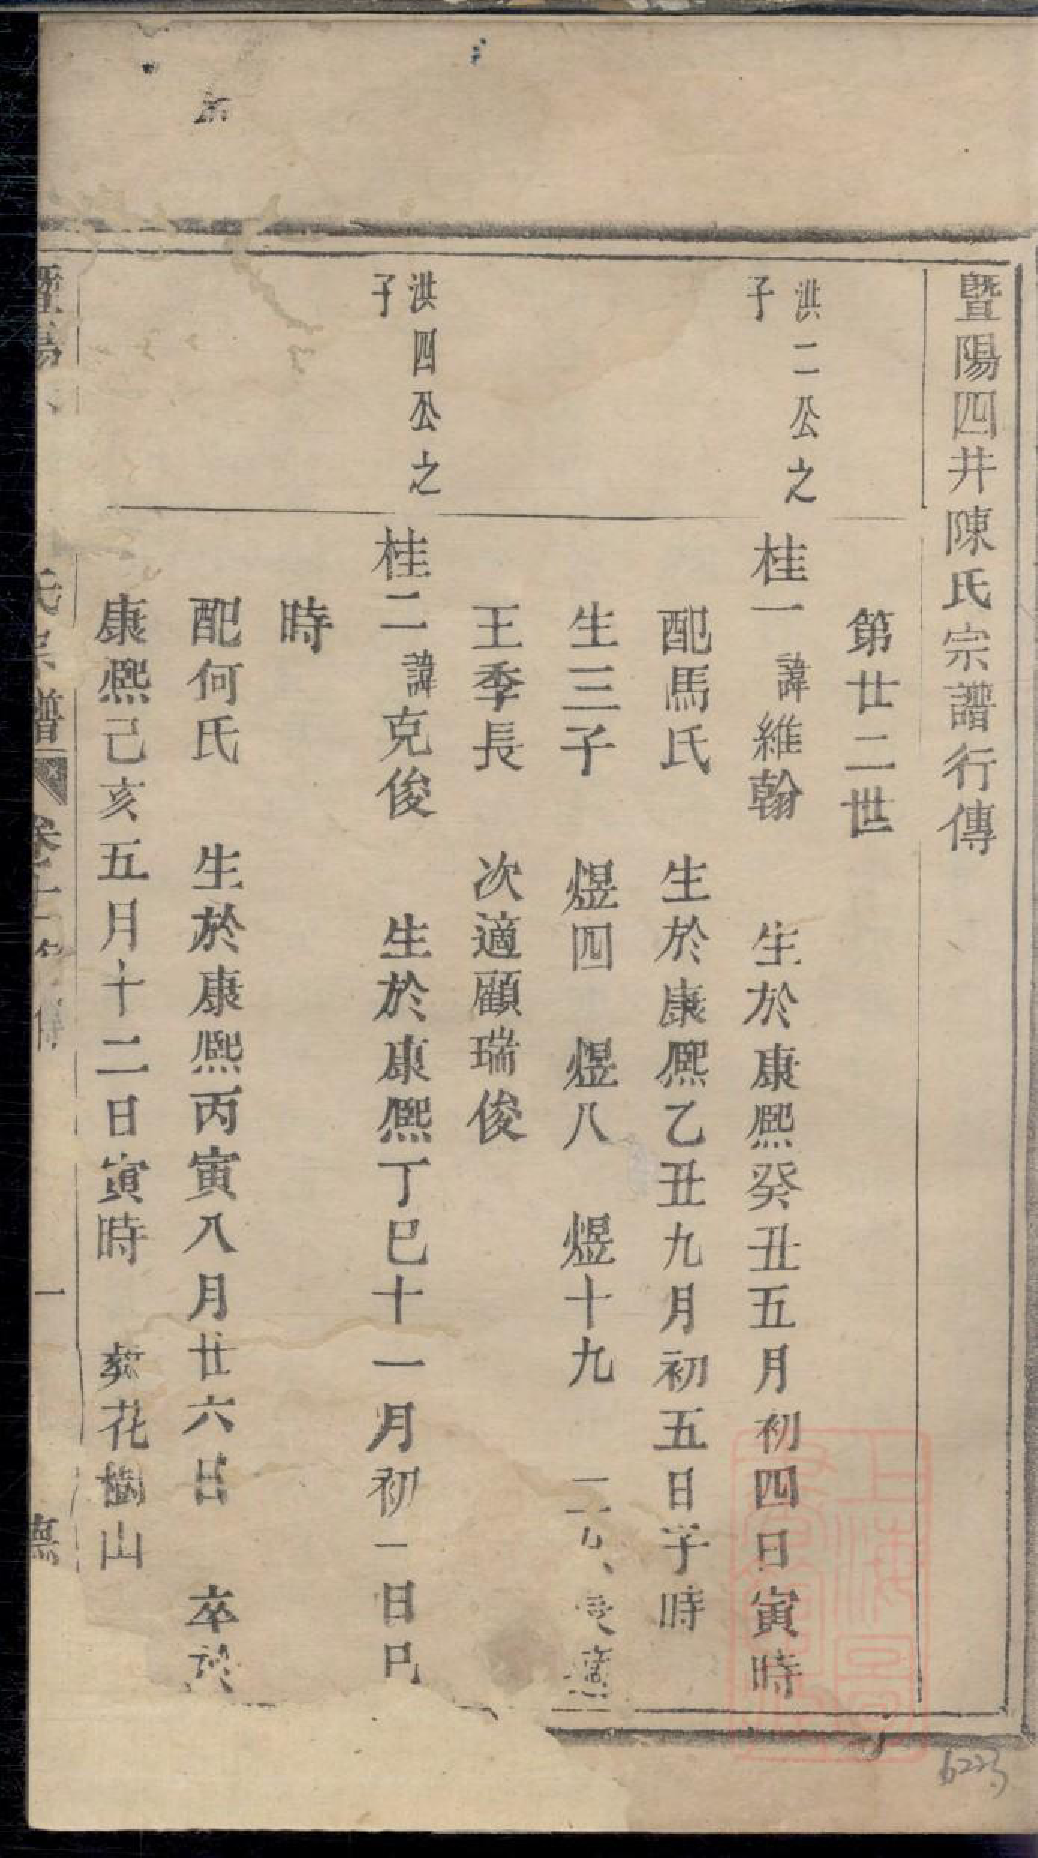 暨陽四井陳氏宗譜行傳
第廿二世
洪二公之
子
桂一 諱維翰 生於康熙癸丑五月初四日寅時
配馬氏 生於康熙乙丑九月初五日子時
生三子 煜四 煜八 煜十九 二女長適
王季長 次適顧瑞俊
洪四公之
子
桂二 諱克俊 生於康熙丁巳十一月初一日巳
時
配何氏 生於康熙丙寅八月廿六日 卒於
康熙己亥五月十二日寅時 葬花樹山
暨陽 氏宗譜 卷 傳 一
6223